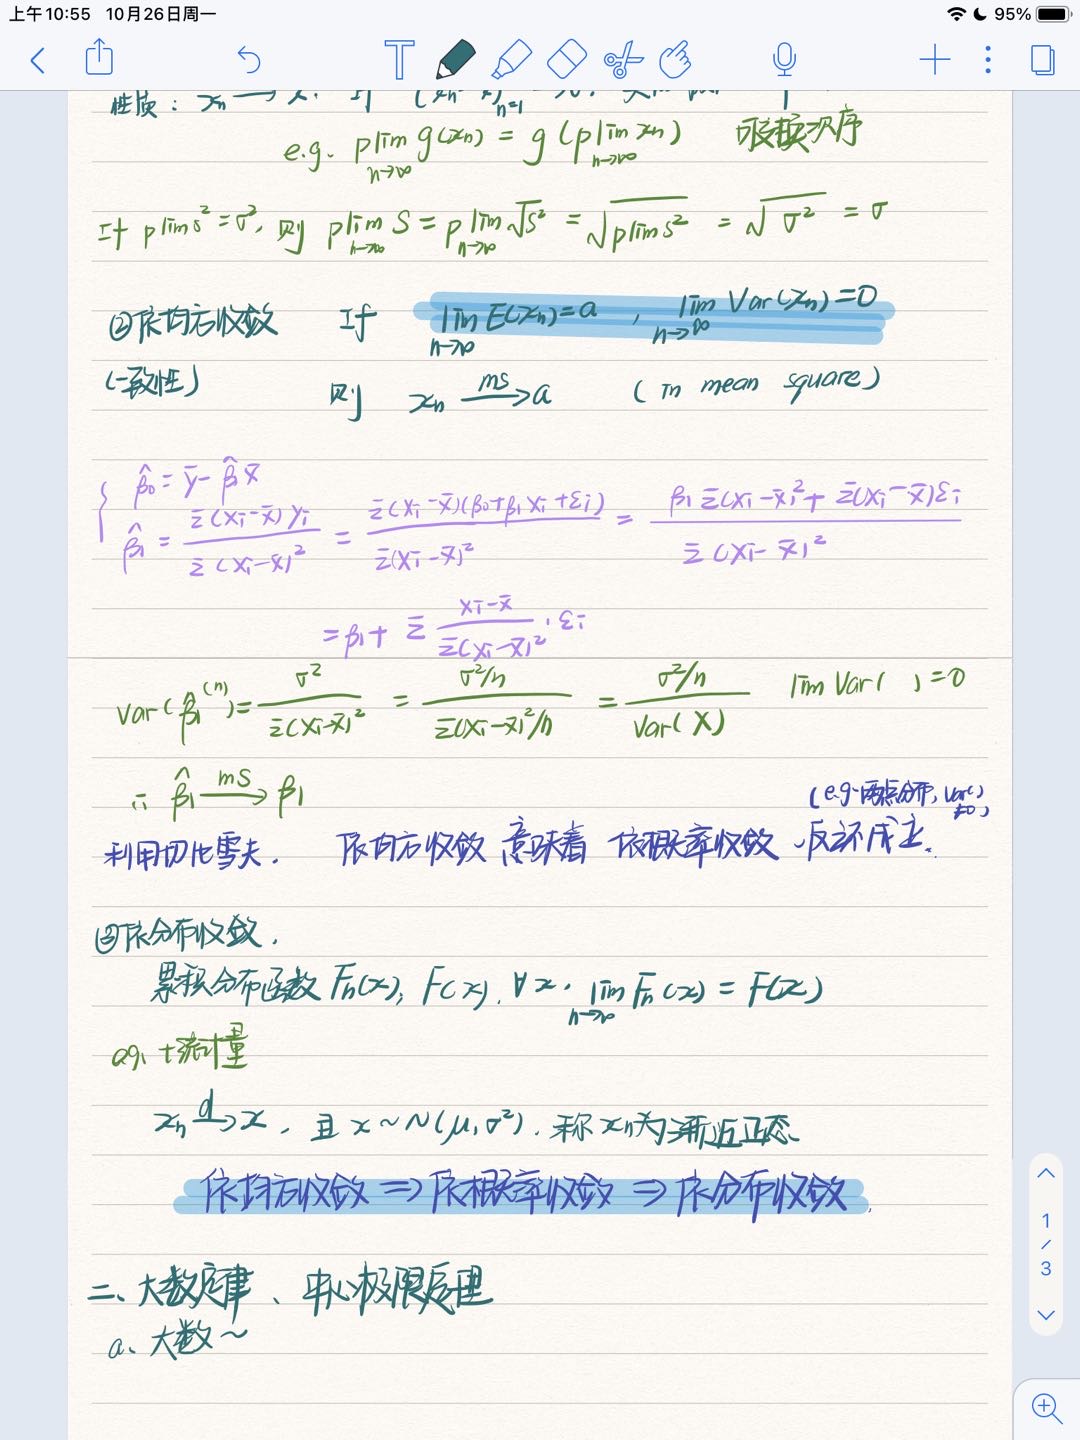 上午10:55 10月26日周一 95%
T
性质：
e.g. plim n→∞ g(xn) = g(plim n→∞ xn) 可交换次序
If plim s² = σ², 则 plim n→∞ S = plim n→∞ √S² = √plim S² = √σ² = σ
②依均方收敛 If lim n→∞ E(xn) = a , lim n→∞ Var(xn) = 0
(一致性) 则 xn —ms→ a (in mean square)
β̂0 = ȳ - β̂1x̄
β̂1 = Σ(xi-x̄)yi / Σ(xi-x̄)² = Σ(xi-x̄)(β0+β1xi+εi) / Σ(xi-x̄)² = β1Σ(xi-x̄)²+Σ(xi-x̄)εi / Σ(xi-x̄)²
= β1 + Σ xi-x̄ / Σ(xi-x̄)² · εi
Var(β̂1⁽ⁿ⁾) = σ² / Σ(xi-x̄)² = σ²/n / Σ(xi-x̄)²/n = σ²/n / Var(X) lim Var( ) = 0
∴ β̂1 —ms→ β1
(e.g. 两点分布, Var() ≠0)
利用切比雪夫. 依均方收敛 意味着 依概率收敛、反之不成立.
③依分布收敛.
累积分布函数 Fn(x), F(x), ∀x, lim n→∞ Fn(x) = F(x)
eg. t统计量
xn —d→ x , 且 x~N(μ, σ²). 称 xn为渐近正态
依均方收敛 ⇒ 依概率收敛 ⇒ 依分布收敛.
二、大数定律、中心极限定理
a、大数~
1
/
3